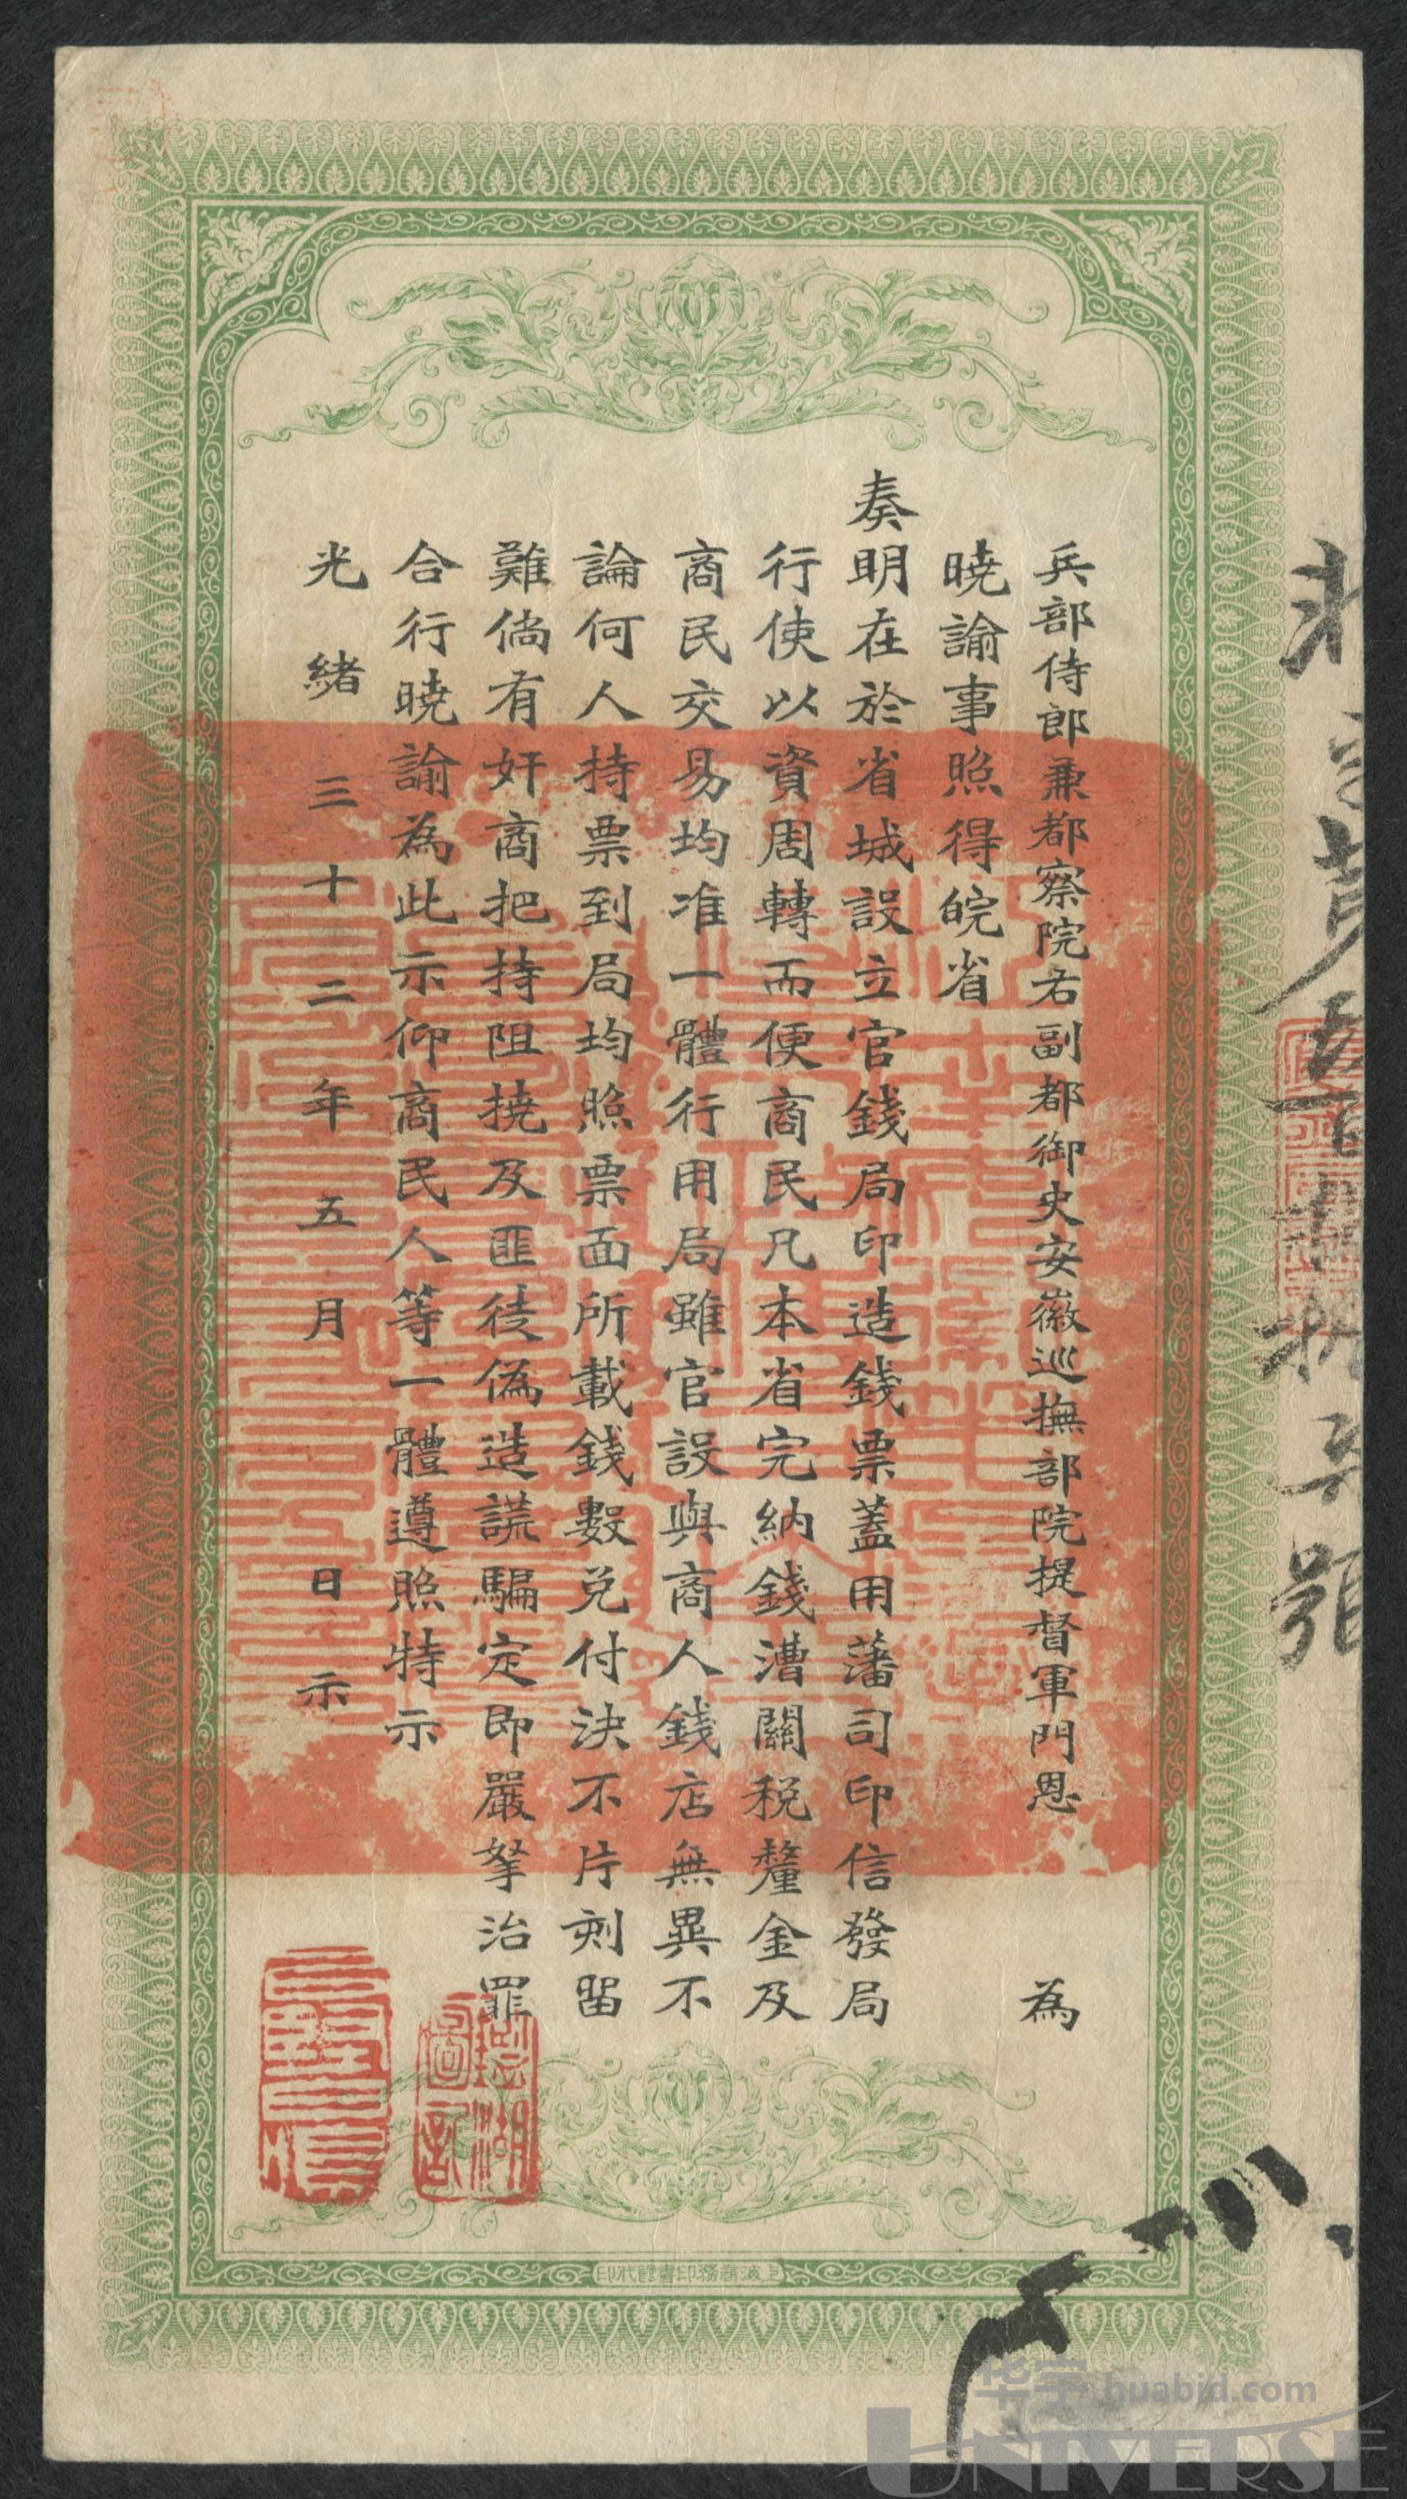 兵部侍郎兼都察院右副都御史安徽巡撫部院提督軍門恩 為
曉諭事照得皖省
奏明在於省城設立官錢局印造錢票蓋用藩司印信發局
行使以資周轉而便商民凡本省完納錢漕關稅釐金及
商民交易均准一體行用局雖官設與商人錢店無異不
論何人持票到局均照票面所載錢數兌付決不片刻留
難倘有奸商把持阻撓及匪徒偽造謊騙定即嚴拏治罪
合行曉諭為此示仰商民人等一體遵照特示
光緒三十二年五月 日示
上海商務印書館代印
华宇 huabid.com
UNIVERSE